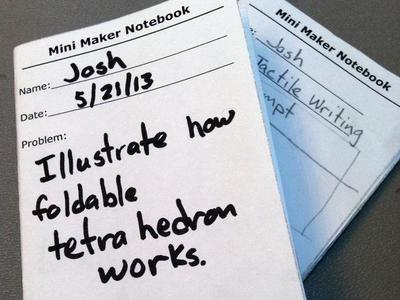 Mini Maker Notebook
Name: Josh
Date: 5/21/13
Problem:
Illustrate how
foldable
tetrahedron
works.
Mini Maker Notebook
Josh
Tactile Writing